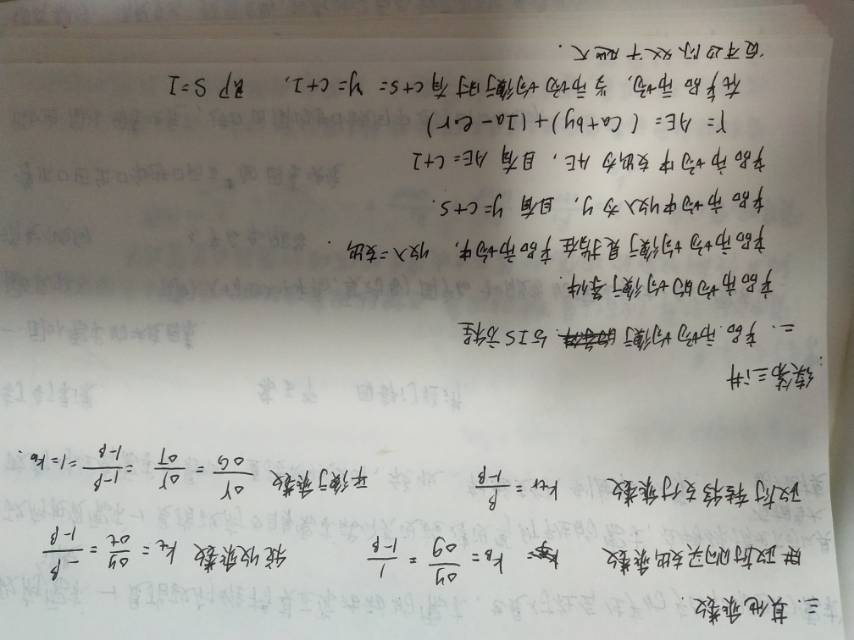 三. 其他乘数.
政府购买支出乘数 kg = Δy/Δg = 1/(1-β) 税收乘数 kt = Δy/Δt = -β/(1-β)
政府转移支付乘数 ktr = β/(1-β) 平衡乘数 ΔY/ΔG = ΔY/ΔT = (1-β)/(1-β) = 1 = kb.
续第三讲
一. 产品市场均衡与IS方程
产品市场的均衡条件.
产品市场均衡是指在产品市场中, 收入=支出.
产品市场中收入为 y, 且有 y=c+s.
产品市场中支出为 AE, 且有 AE=c+I
Y=AE=(Ca+by)+(Ia-er)
在产品市场, 当市场均衡时有 c+s=y=c+I, 即 S=I